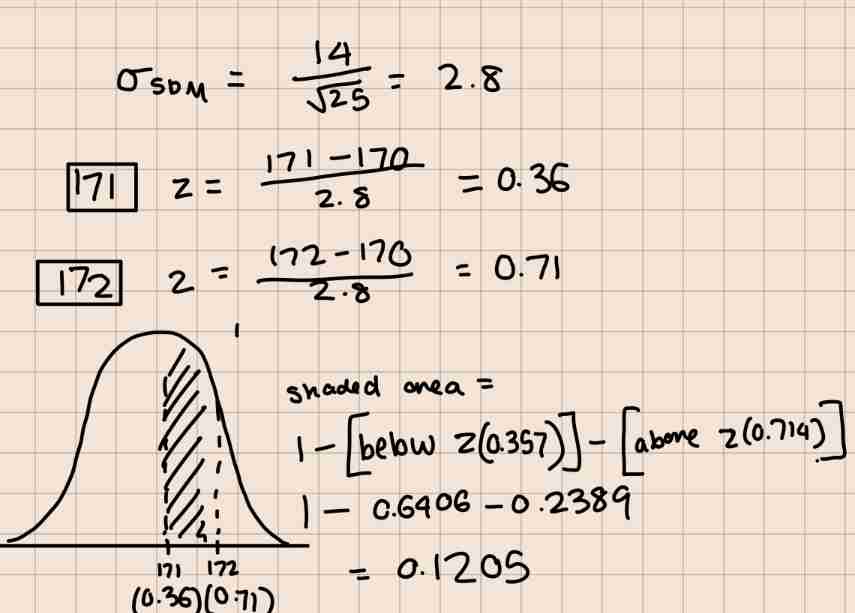 σ_SDM = 14/√25 = 2.8
171 z = (171 − 170)/2.8 = 0.36
172 z = (172 − 170)/2.8 = 0.71
shaded area =
1 − [below z(0.357)] − [above z(0.714)]
1 − 0.6406 − 0.2389
= 0.1205
171 172
(0.36) (0.71)